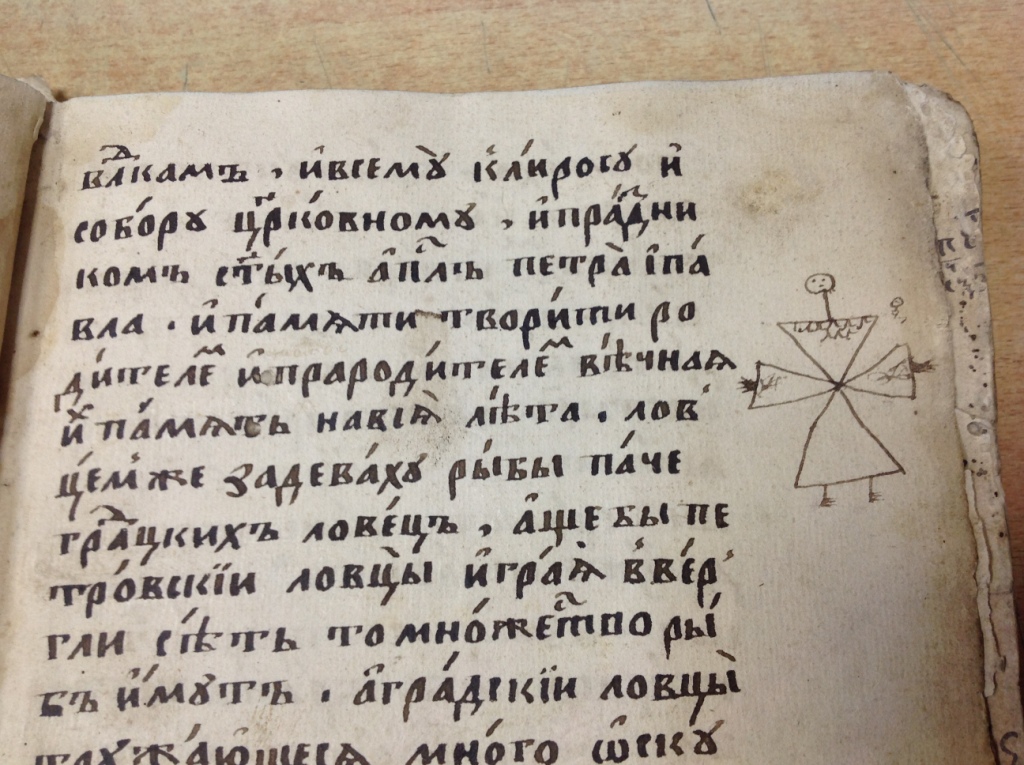 влⷣкамъ , и҆всемꙋ̀ кли́росꙋ и҆
собо́рꙋ цр҃ко́вномꙋ , и҆пра́зⷣни
комъ ст҃ы́хъ а҆пⷭ҇лъ петра̀ і҆па́
вла . и҆па́мѧти твори́ти ро
ди́телеⷨ и҆прароди́телеⷨ вѣ́чнаѧ
и҆па́мѧть навїѧ̀ лѣ́та . лов
це́мже задева́хꙋ ры́бы па́че
гра́дцкихъ лове́цъ , а҆ще бы пе
тро́вскїи ловцы̀ и҆гра́ѧ вве́р
гли сѣ́ть то мно́жество ры́
бъ и҆́мутъ . а҆гра́дскїи ловцы̀
трꙋжа́ющесѧ мно́го ѡ҆скꙋ